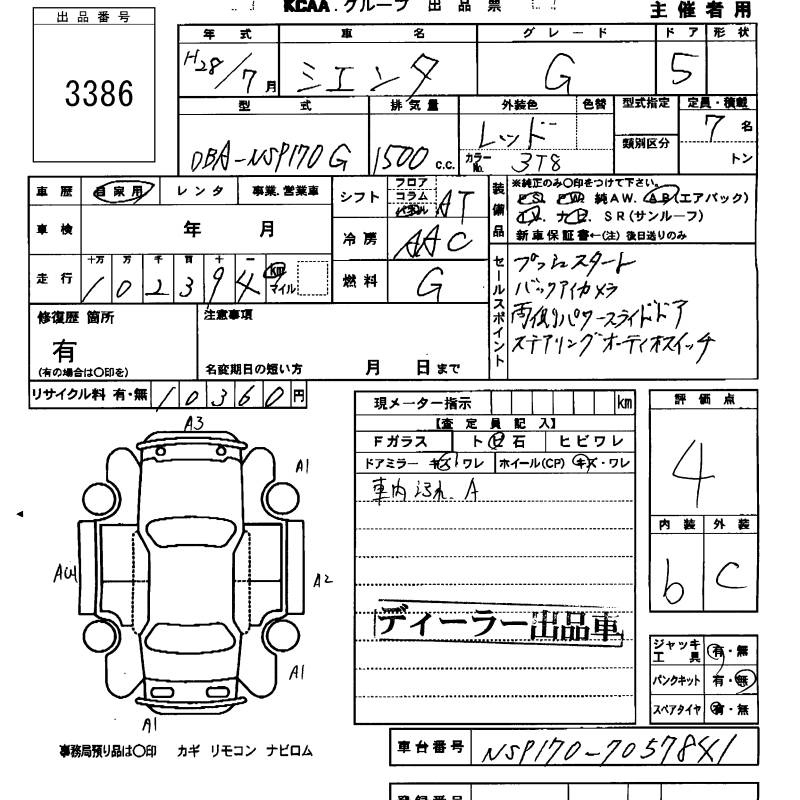 KCAA.グループ 出品票
主催者用
出品番号
3386
年式 車名 グレード ドア 形状
H28/7月 シエンタ G 5
型式 排気量 外装色 色替 型式指定 定員・積載
類別区分
DBA-NSP170G 1500 c.c. レッド カラーNo. 3T8 7名
トン
車歴 自家用 レンタ 事業.営業車
車検 年 月
走行 十万 万 千 百 十 一
102394 km マイル
シフト フロア コラム AT
冷房 AAC
燃料 G
装備品
※純正のみ〇印をつけて下さい。
PS. PW. 純AW. AB(エアバック)
TV. ナビ. SR(サンルーフ)
新車保証書←(注) 後日送りのみ
セールスポイント
プッシュスタート
バックアイカメラ
両側パワースライドドア
ステアリングオーディオスイッチ
修復歴 箇所
有
(有の場合は〇印を)
注意事項
名変期日の短い方 月 日まで
リサイクル料 有・無 10360円
現メーター指示 km
【査定員記入】
Fガラス ト石 ヒビワレ
ドアミラー キズ・ワレ ホイール(CP) キズ・ワレ
車内汚れ. A
ディーラー出品車
評価点
4
内装 外装
b C
ジャッキ工具 有・無
パンクキット 有・無
スペアタイヤ 有・無
A3
A1
A2
A1
A1
事務局預り品は〇印 カギ リモコン ナビロム
車台番号 NSP170-7057841
登録番号